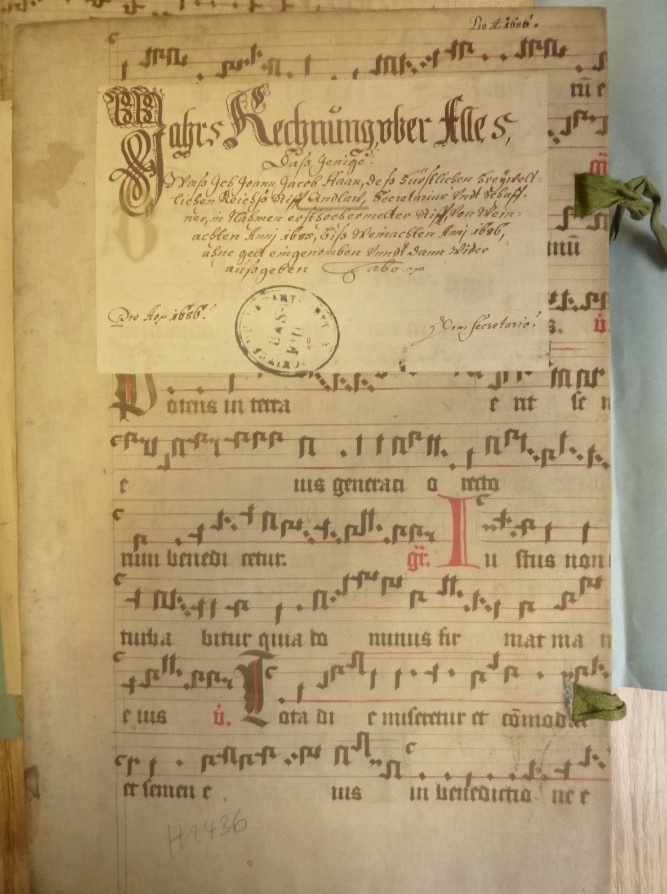 Pro Aõ. 1686.
Jahrs Rechnung, uber Alles,
Dasß Jenige.
Wasß Ich Joann Jacob Haan, desß Fürstlichen Freywelt=
lichen Reichsß Stifft Andlaw, Secretarius Undt Schaff=
ner, in Nahmen ersthochermelter Stifft, Von Wein=
achten Anni 1685, bisß Weinachten Anni 1686,
ahne gelt eingenomben Unndt dann Wider
ausßgeben habe
Pro Aõ. 1686.
Vom Secretario.
Potens in terra e rit se
e ius generati o recto
rum benedi cetur. gr. In iustus non
turba bitur quia do minus fir mat ma n
e ius v. Tota di e miseretur et cōmod
et semen e ius in benedictio ne e
H. 2436